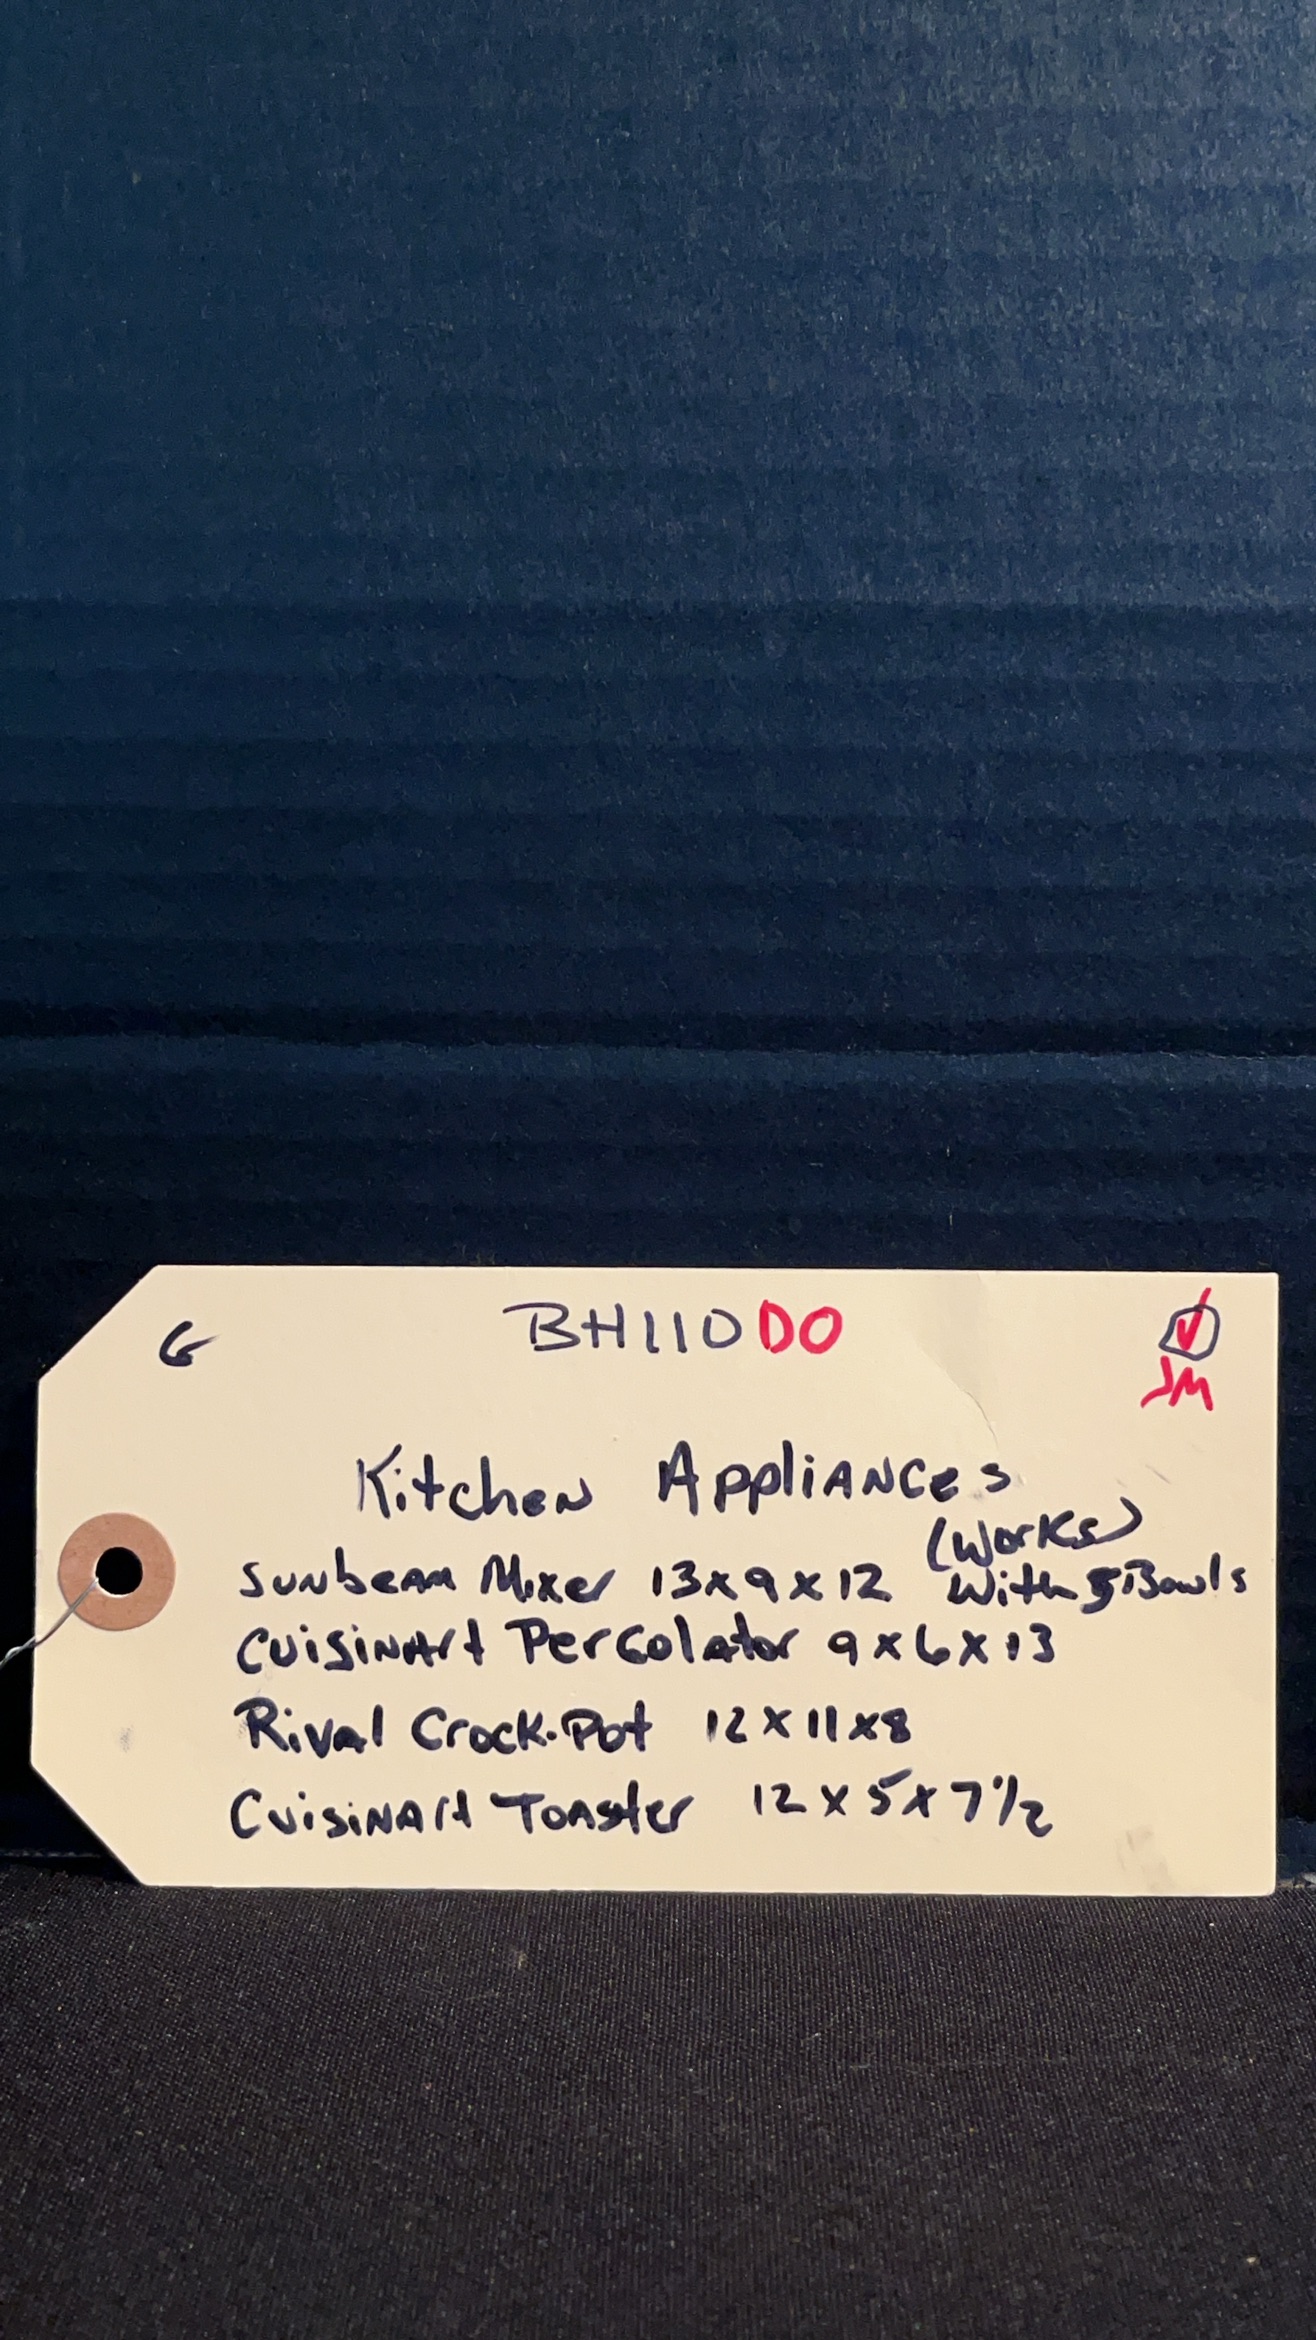 G BH110DO
JM
Kitchen Appliances
(Works)
Sunbeam Mixer 13x9x12 With Bowls
Cuisinart Percolator 9x6x13
Rival Crock-Pot 12x11x8
Cuisinart Toaster 12x5x7 1/2